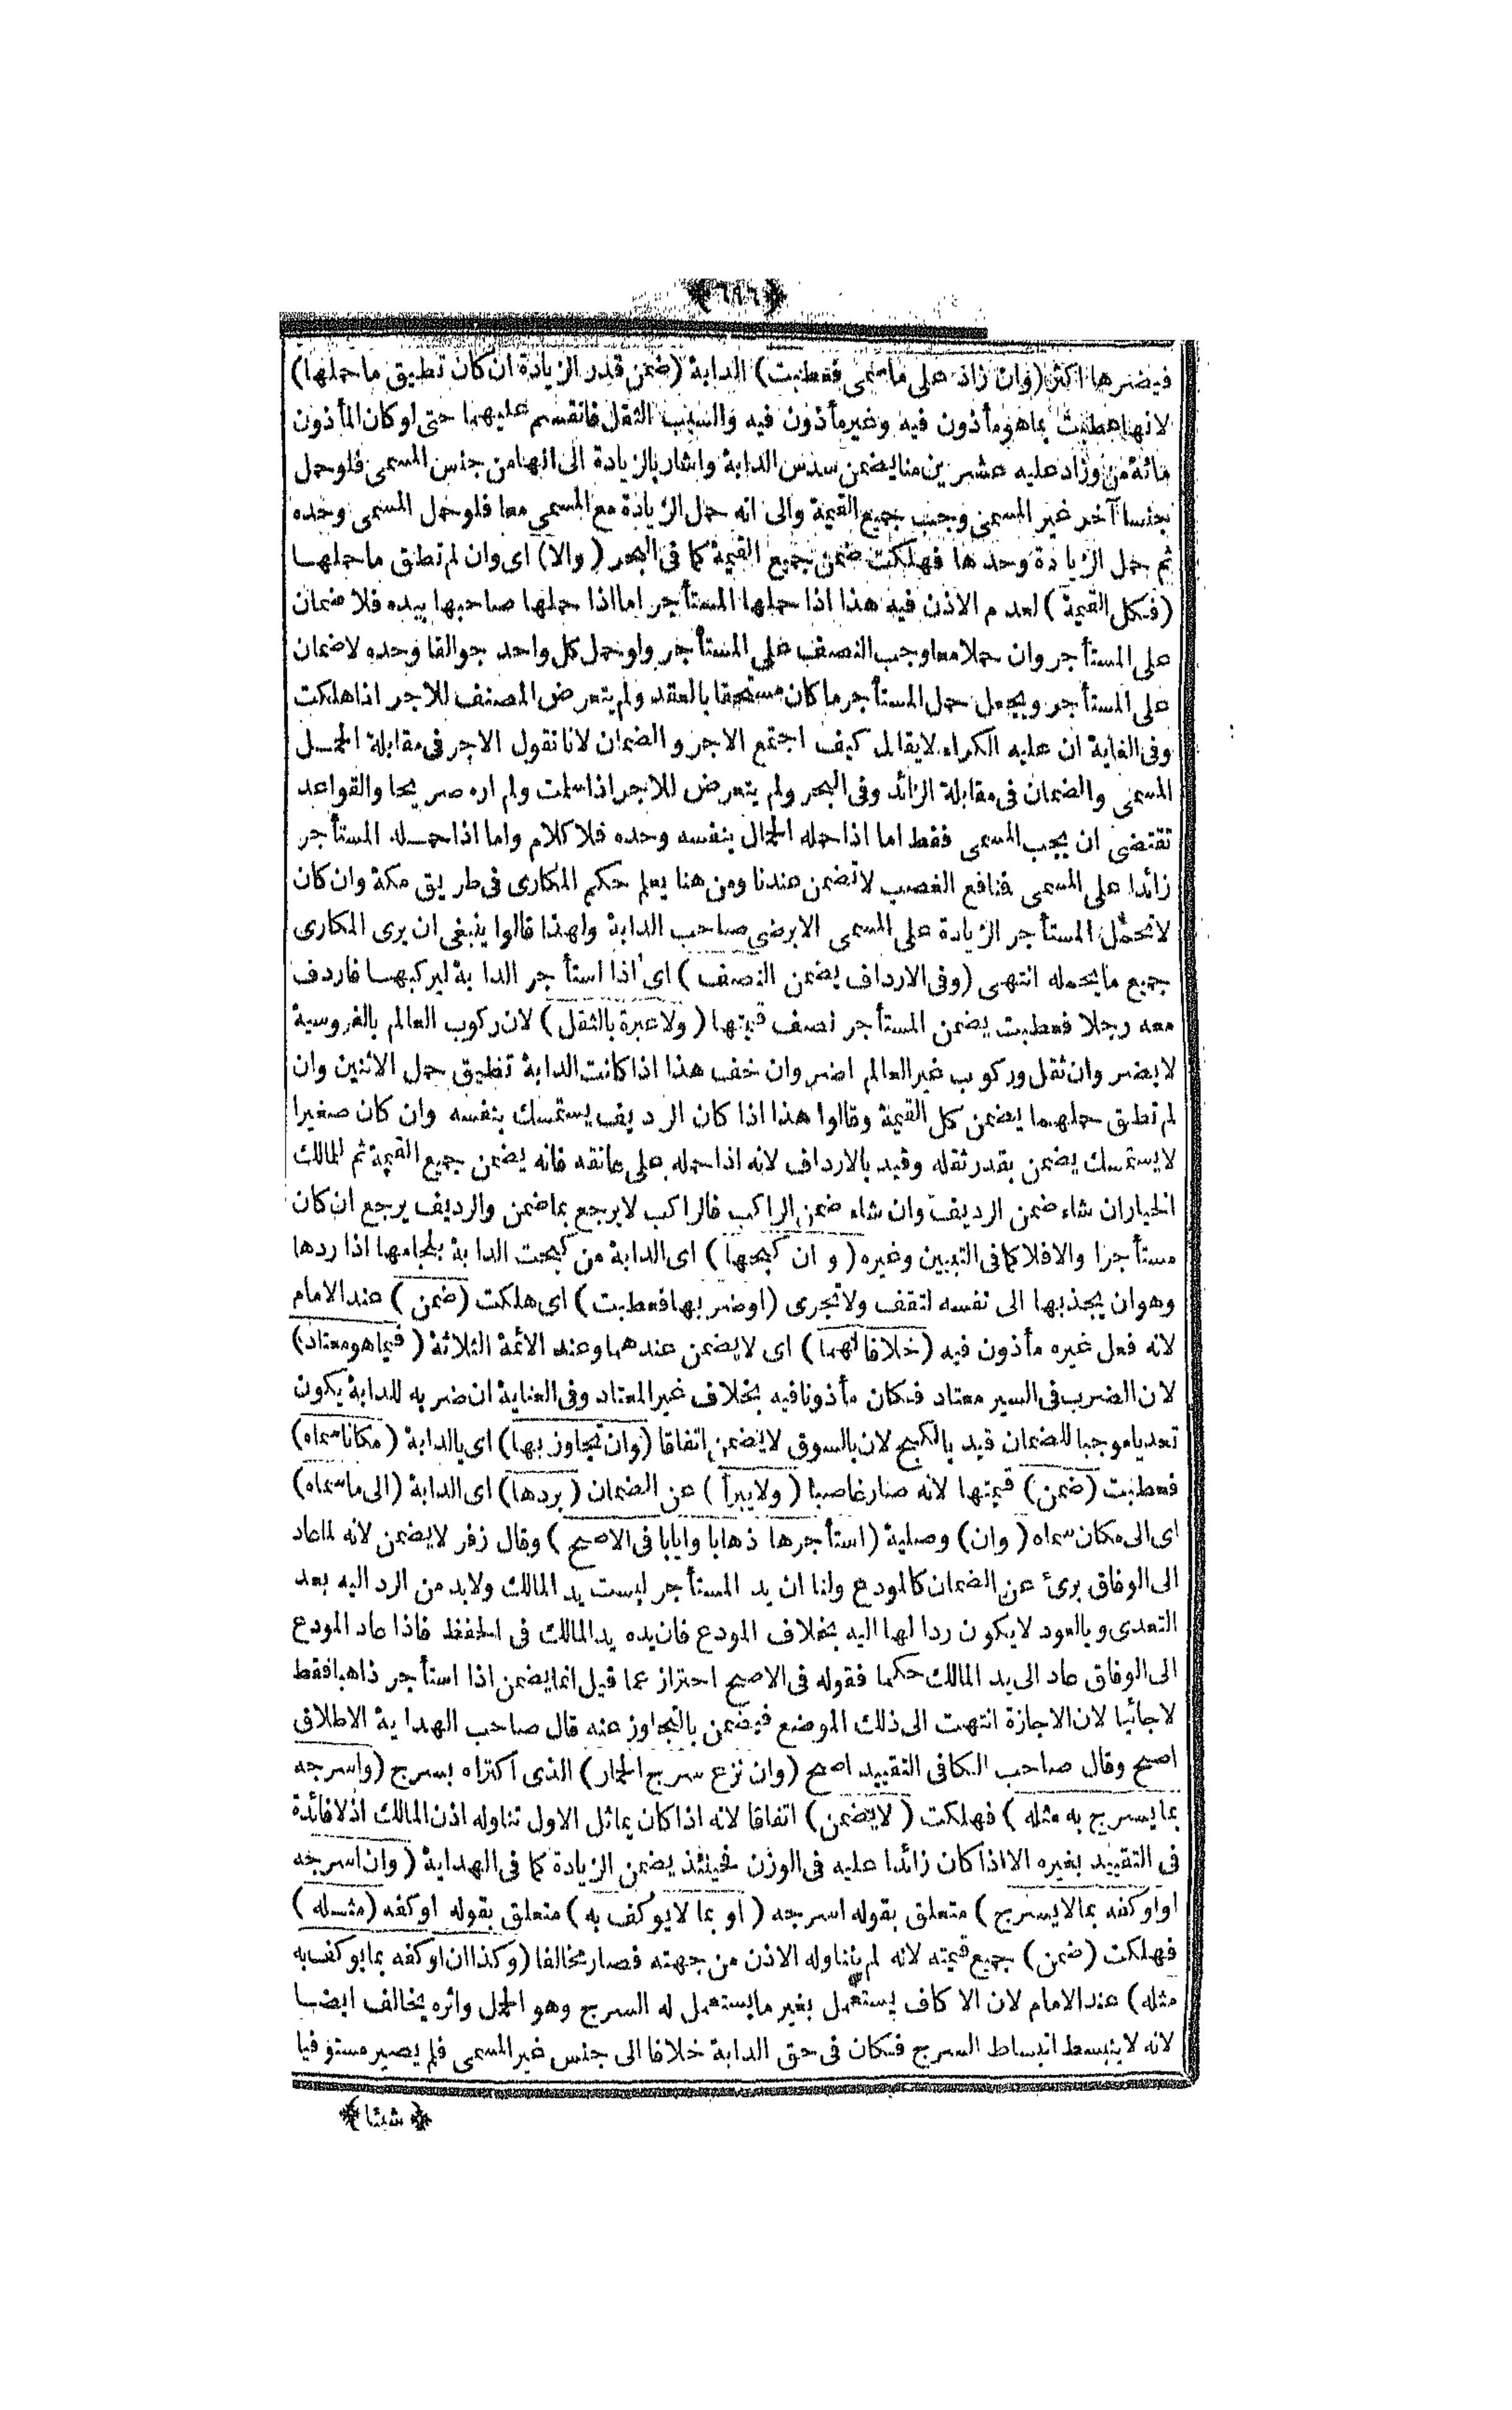 ﴿٦٩٦﴾
فيضرها اكثر (وان زاد على ماسمى فعطبت) الدابة (ضمن قدر الزيادة ان كان تطيق ماحملها)
لانها عطبت بماهو مأذون فيه وغير مأذون فيه والسبب الثقل فانقسم عليهما حتى لوكان المأذون
مائة من وزاد عليه عشرين منا يضمن سدس الدابة واشار بالزيادة الى انها من جنس المسمى فلو حمل
جنسا آخر غير المسمى وجب جميع القيمة والى انه حمل الزيادة مع المسمى معا فلو حمل المسمى وحده
ثم حمل الزيادة وحدها فهلكت ضمن جميع القيمة كما فى البحر (والا) اى وان لم تطق ماحملها
(فكل القيمة) لعدم الاذن فيه هذا اذا حملها المستأجر اما اذا حملها صاحبها بيده فلا ضمان
على المستأجر وان حملا معا وجب النصف على المستأجر ولو حمل كل واحد جوالقا وحده لاضمان
على المستأجر ويجعل حمل المستأجر ماكان مستحقا بالعقد ولم يتعرض المصنف للاجر اذا هلكت
وفى الغاية ان عليه الكراء لايقال كيف اجتمع الاجر والضمان لانا نقول الاجر فى مقابلة الحمل
المسمى والضمان فى مقابلة الزائد وفى البحر ولم يتعرض للاجر اذا سلمت ولم اره صريحا والقواعد
تقتضى ان يجب المسمى فقط اما اذا حمله الحمال بنفسه وحده فلا كلام واما اذا حمله المستأجر
زائدا على المسمى فنافع الغصب لاتضمن عندنا ومن هنا يعلم حكم المكارى فى طريق مكة وان كان
لاتحمل المستأجر الزيادة على المسمى الا برضى صاحب الدابة ولهذا قالوا ينبغى ان يرى المكارى
جميع مايحمله انتهى (وفى الارداف يضمن النصف) اى اذا استأجر الدابة ليركبها فاردف
معه رجلا فعطبت يضمن المستأجر نصف قيمتها (ولا عبرة بالثقل) لان ركوب العالم بالفروسية
لايضر وان ثقل وركوب غير العالم اضر وان خف هذا اذا كانت الدابة تطيق حمل الاثنين وان
لم تطق حملهما يضمن كل القيمة وقالوا هذا اذا كان الرديف يستمسك بنفسه وان كان صغيرا
لايستمسك يضمن بقدر ثقله وقيد بالارداف لانه اذا حمله على عاتقه فانه يضمن جميع القيمة ثم للمالك
الخيار ان شاء ضمن الرديف وان شاء ضمن الراكب فالراكب لايرجع بماضمن والرديف يرجع ان كان
مستأجرا والا فلا كما فى التبيين وغيره (وان كبحها) اى الدابة من كبحت الدابة بلجامها اذا ردها
وهو ان يجذبها الى نفسه لتقف ولاتجرى (اوضربها فعطبت) اى هلكت (ضمن) عند الامام
لانه فعل غيره مأذون فيه (خلافا لهما) اى لايضمن عندهما وعند الائمة الثلاثة (فيما هو معتاد)
لان الضرب فى السير معتاد فكان مأذونا فيه بخلاف غير المعتاد وفى العناية ان ضربه للدابة يكون
تعديا موجبا للضمان قيد بالكبح لان بالسوق لايضمن اتفاقا (وان تجاوز بها) اى بالدابة (مكانا سماه)
فعطبت (ضمن) قيمتها لانه صار غاصبا (ولايبرأ) عن الضمان (بردها) اى الدابة (الى ماسماه)
اى الى مكان سماه (وان) وصلية (استأجرها ذهابا وايابا فى الاصح) وقال زفر لايضمن لانه لما عاد
الى الوفاق برئ عن الضمان كالمودع ولنا ان يد المستأجر ليست يد المالك ولابد من الرد اليه بعد
التعدى وبالعود لايكون ردا لها اليه بخلاف المودع فان يده يد المالك فى الحفظ فاذا عاد المودع
الى الوفاق عاد الى يد المالك حكما فقوله فى الاصح احتراز عما قيل انما يضمن اذا استأجر ذاهبا فقط
لا جائيا لان الاجازة انتهت الى ذلك الموضع فيضمن بالتجاوز عنه قال صاحب الهداية الاطلاق
اصح وقال صاحب الكافى التقييد اصح (وان نزع سرج الحمار) الذى اكتراه بسرج (واسرجه
بما يسرج به مثله) فهلكت (لايضمن) اتفاقا لانه اذا كان يماثل الاول تناوله اذن المالك اذ لافائدة
فى التقييد بغيره الا اذا كان زائدا عليه فى الوزن فحينئذ يضمن الزيادة كما فى الهداية (وان اسرجه
او اوكفه بما لايسرج) متعلق بقوله اسرجه (او بما لايوكف به) متعلق بقوله اوكفه (مثله)
فهلكت (ضمن) جميع قيمته لانه لم يتناوله الاذن من جهته فصار مخالفا (وكذا ان اوكفه بما يوكف به
مثله) عند الامام لان الاكاف يستعمل بغير مايستعمل له السرج وهو الحمل واثره يخالف ايضا
لانه لاينبسط انبساط السرج فكان فى حق الدابة خلافا الى جنس غير المسمى فلم يصير مستوفيا
﴿شيئا﴾